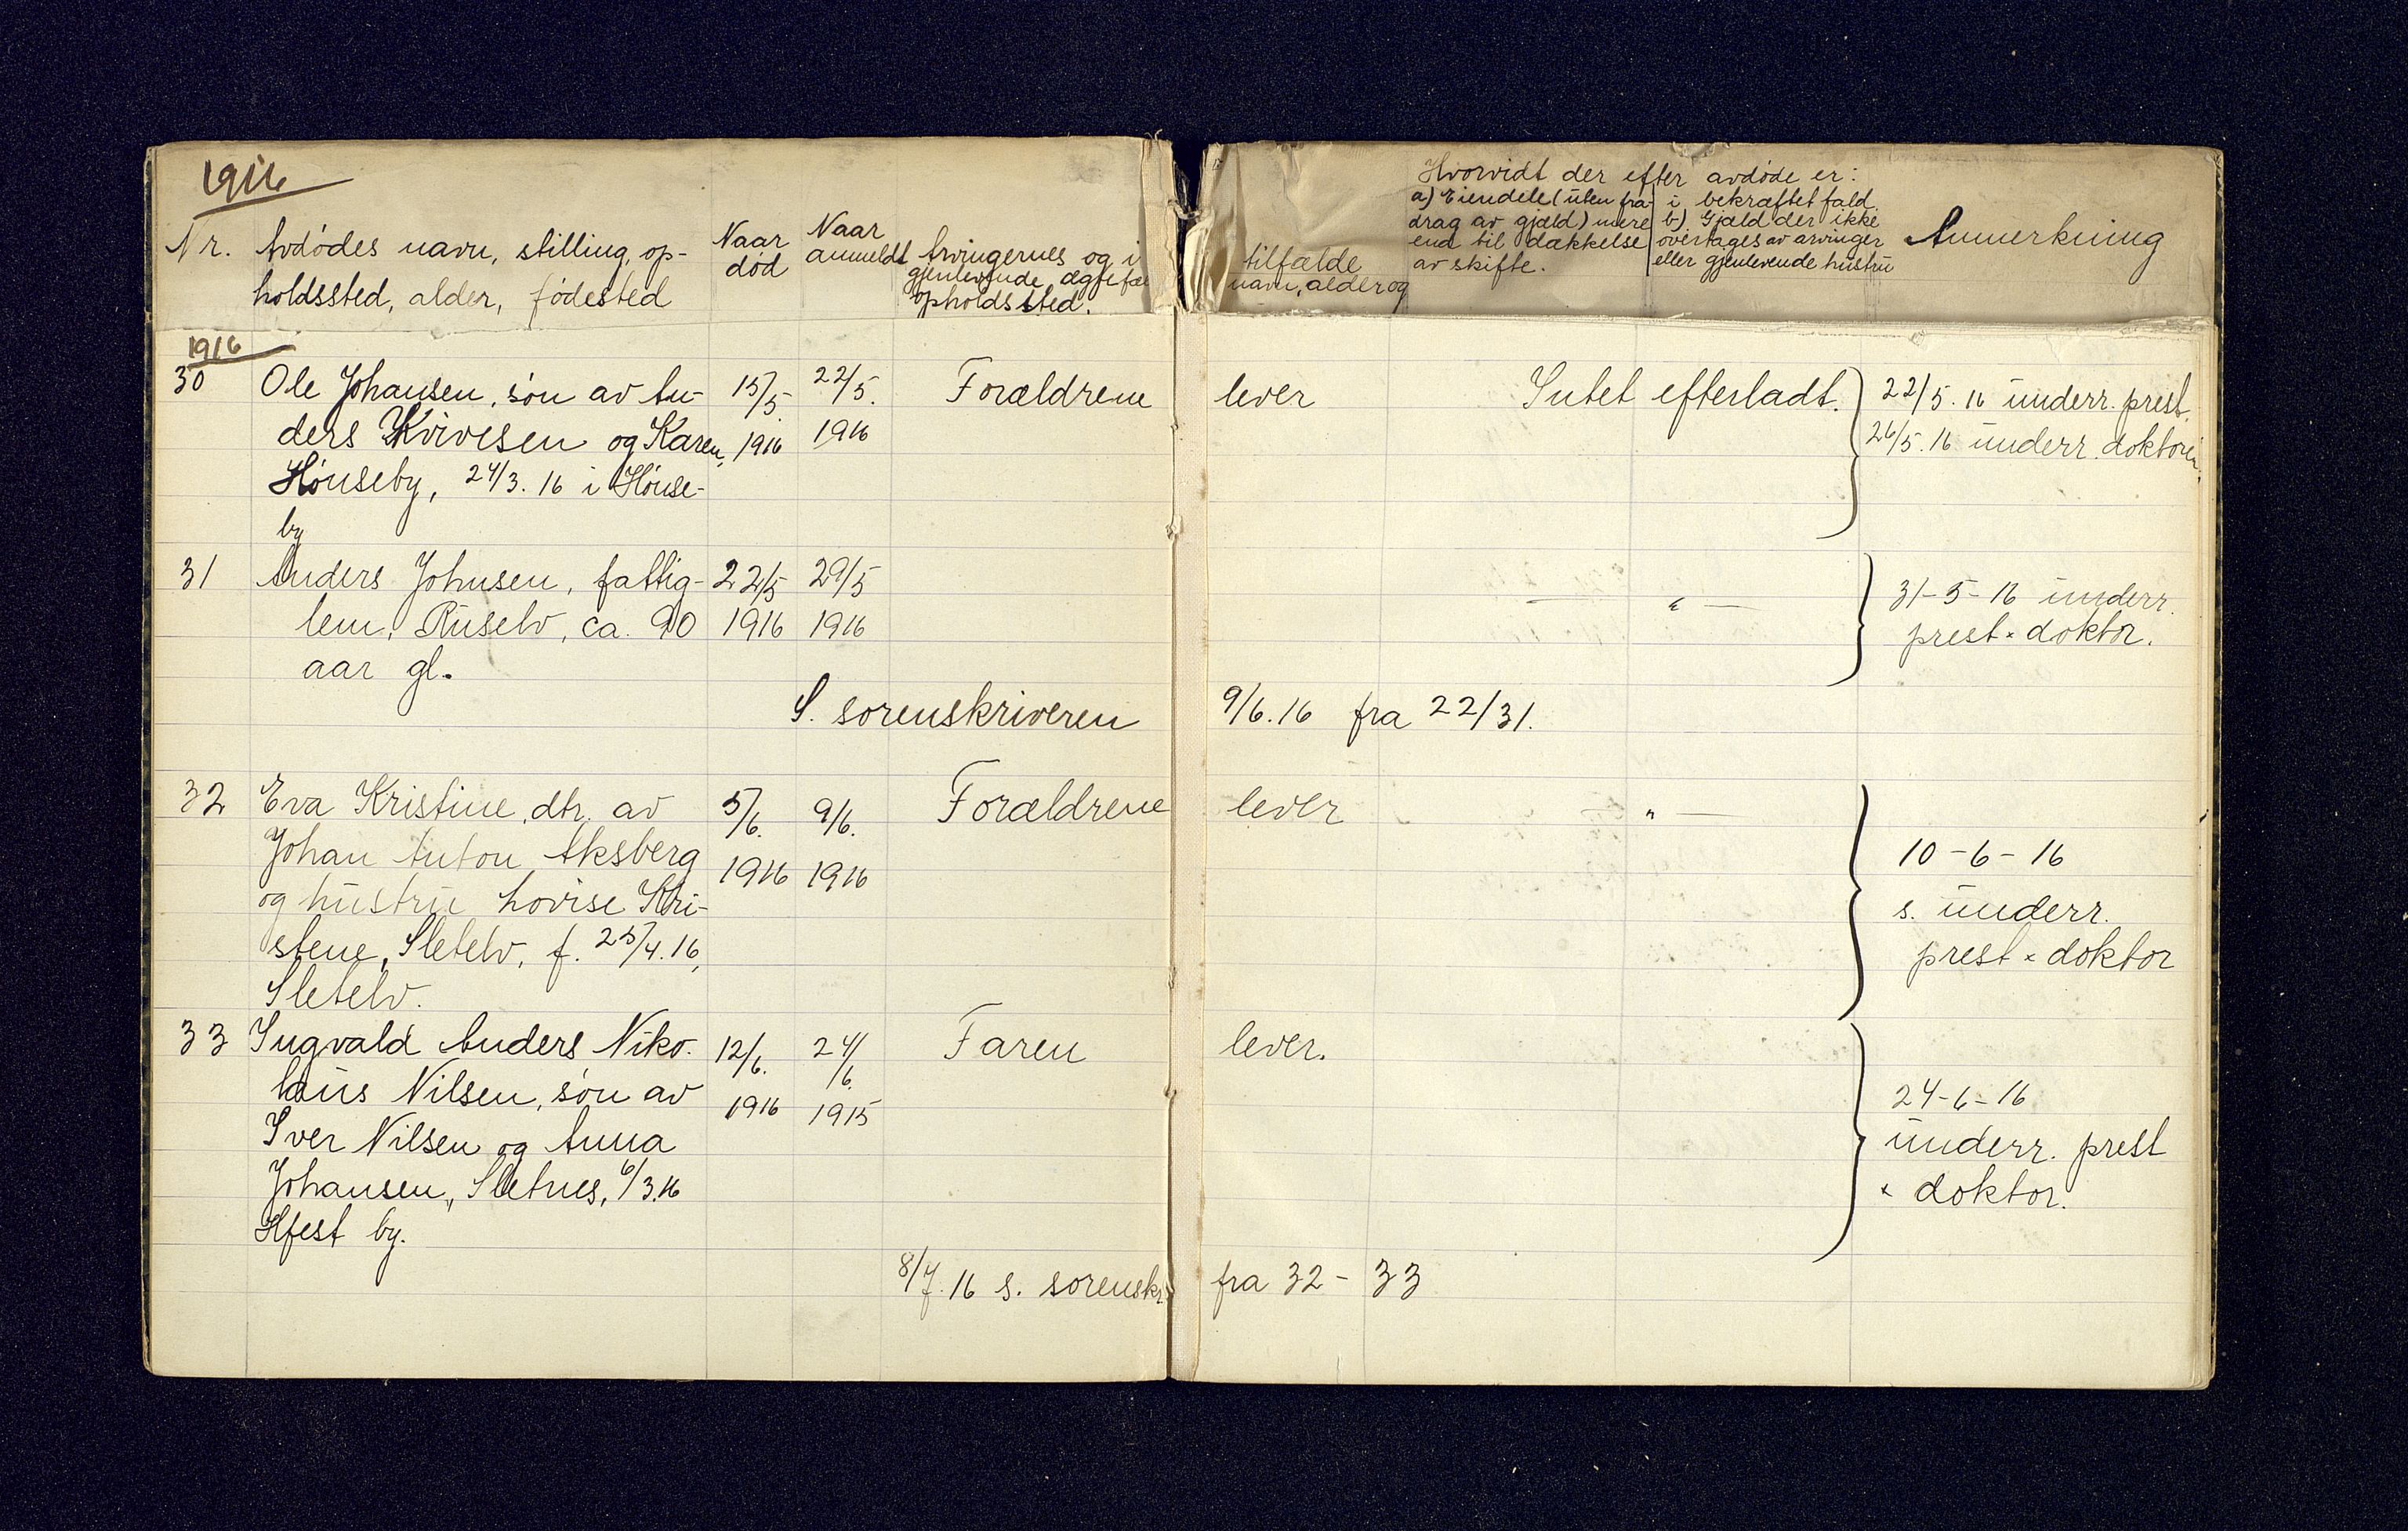 1916
Nr. Avdødes navn, stilling, op-
holdssted, alder, fødested
Naar
død
Naar
anmeldt
Arvingernes og i
gjenlevende ægtefæ
opholdssted.
tilfælde
navn, alder og
Hvorvidt der efter avdøde er:
a) Eiendele (uten fra-
drag av gjæld) mere
end til dækkelse
av skifte.
i bekræftet fald
b) Gjæld der ikke
overtages av arvinger
eller gjenlevende hustru
Anmerkning
1916
30 Ole Johansen, søn av An-
ders Kvivesen og Karen,
Hønseby, 24/3. 16 i Hønse-
by
15/5
1916
22/5.
1916
Forældrene lever
Intet efterladt.
22/5. 16 underr. prest.
26/5. 16 underr. doktoren.
31 Anders Johnsen, fattig-
lem, Ruselv, ca. 90
aar gl.
22/5
1916
29/5
1916
— " —
31-5-16 underr.
prest × doktor.
S. sorenskriveren 9/6. 16 fra 22/31.
32 Eva Kristine, dtr. av
Johan Anton Aksberg
og hustru Lovise Kri-
stene, Sletelv, f. 25/4. 16,
Sletelv.
5/6.
1916
9/6.
1916
Forældrene lever
— " —
10-6-16
s. underr.
prest × doktor
33 Ingvald Anders Niko-
laus Nilsen, søn av
Iver Nilsen og Anna
Johansen, Sletnes, 6/3.16
Hfest by.
12/6.
1916
24/6.
1915
Faren lever.
24-6-16
underr. prest
× doktor.
8/7. 16 s. sorenskr. fra 32 - 33